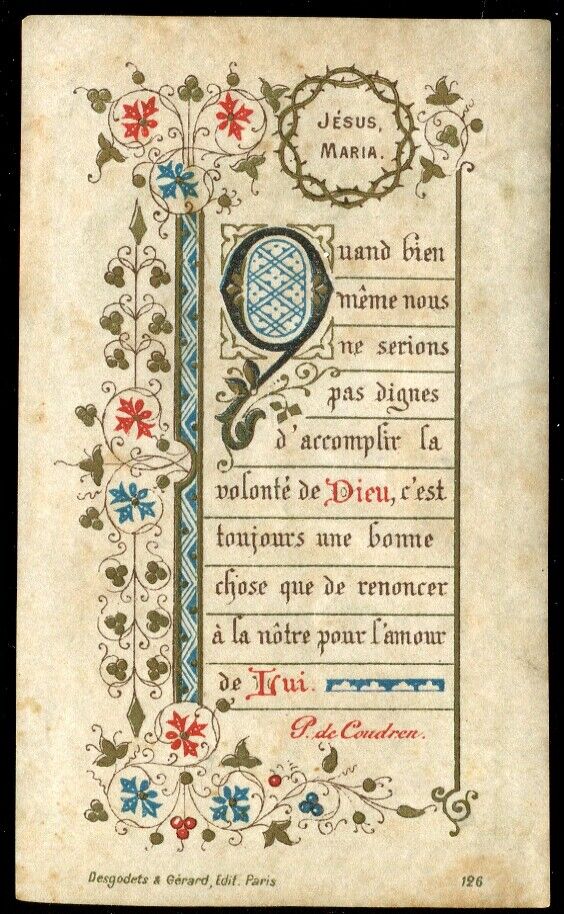 JÉSUS,
MARIA.
Quand bien
même nous
ne serions
pas dignes
d'accomplir la
volonté de Dieu, c'est
toujours une bonne
chose que de renoncer
à la nôtre pour l'amour
de Lui.
P. de Coudren.
Desgodets & Gérard, Edit. Paris
126